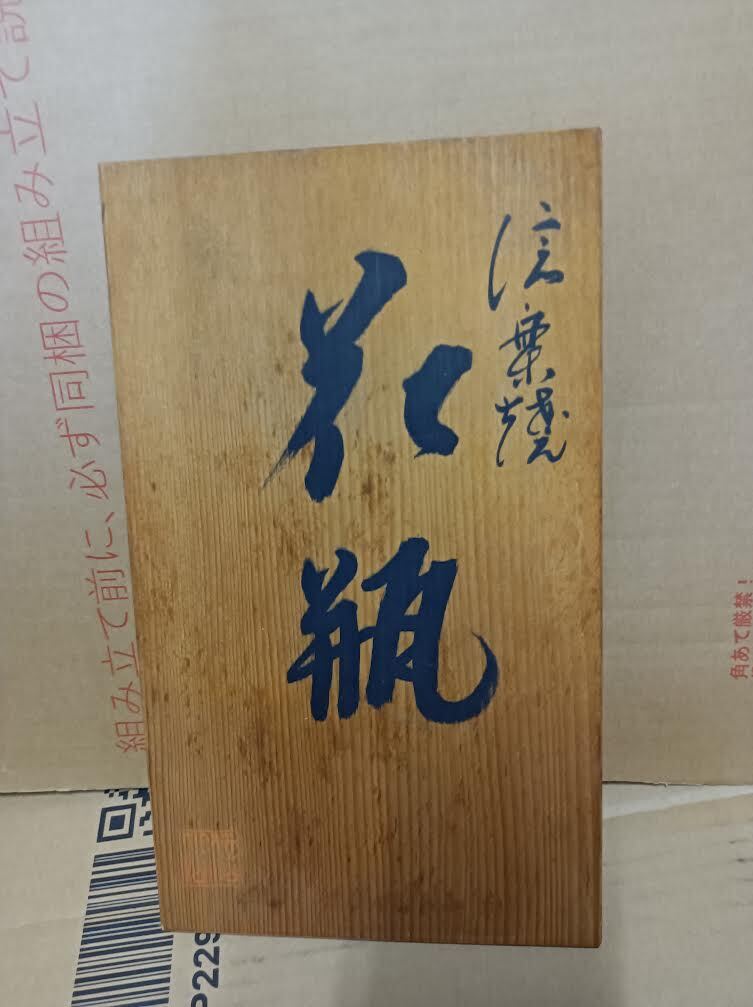 信楽焼
花瓶
組み立て前に、必ず同梱の組み立て説
角あて厳禁！
P229